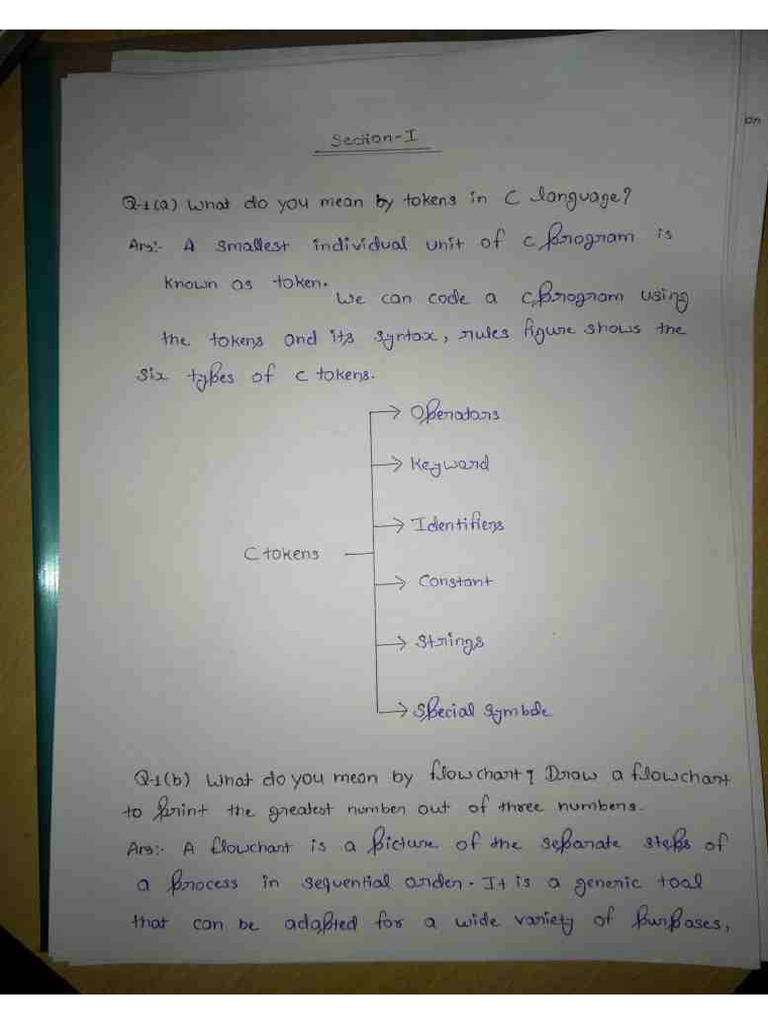 Section-I
Q-1(a) What do you mean by tokens in C language?
Ans:- A smallest individual unit of c program is
known as token.
We can code a c program using
the tokens and its syntax, rules figure shows the
six types of c tokens.
Operators
Keyword
Identifiers
C tokens
Constant
Strings
Special symbole
Q-1(b) What do you mean by flowchart? Draw a flowchart
to print the greatest number out of three numbers.
Ans:- A flowchart is a picture of the separate steps of
a process in sequential order. It is a generic tool
that can be adapted for a wide variety of purposes,
on